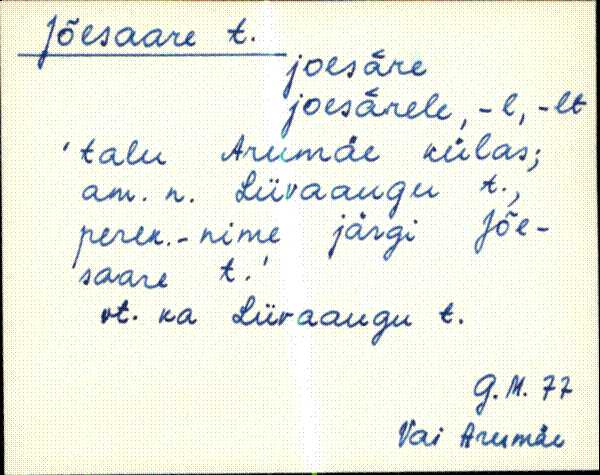 Jõesaare t.
joesāre
joesārele, -l, -lt
'talu Arumäe külas;
am. n. Liivaaugu t.,
perek.-nime järgi Jõe-
saare t.'
vt. ka Liivaaugu t.
G. M. 77
Vai Arumäe